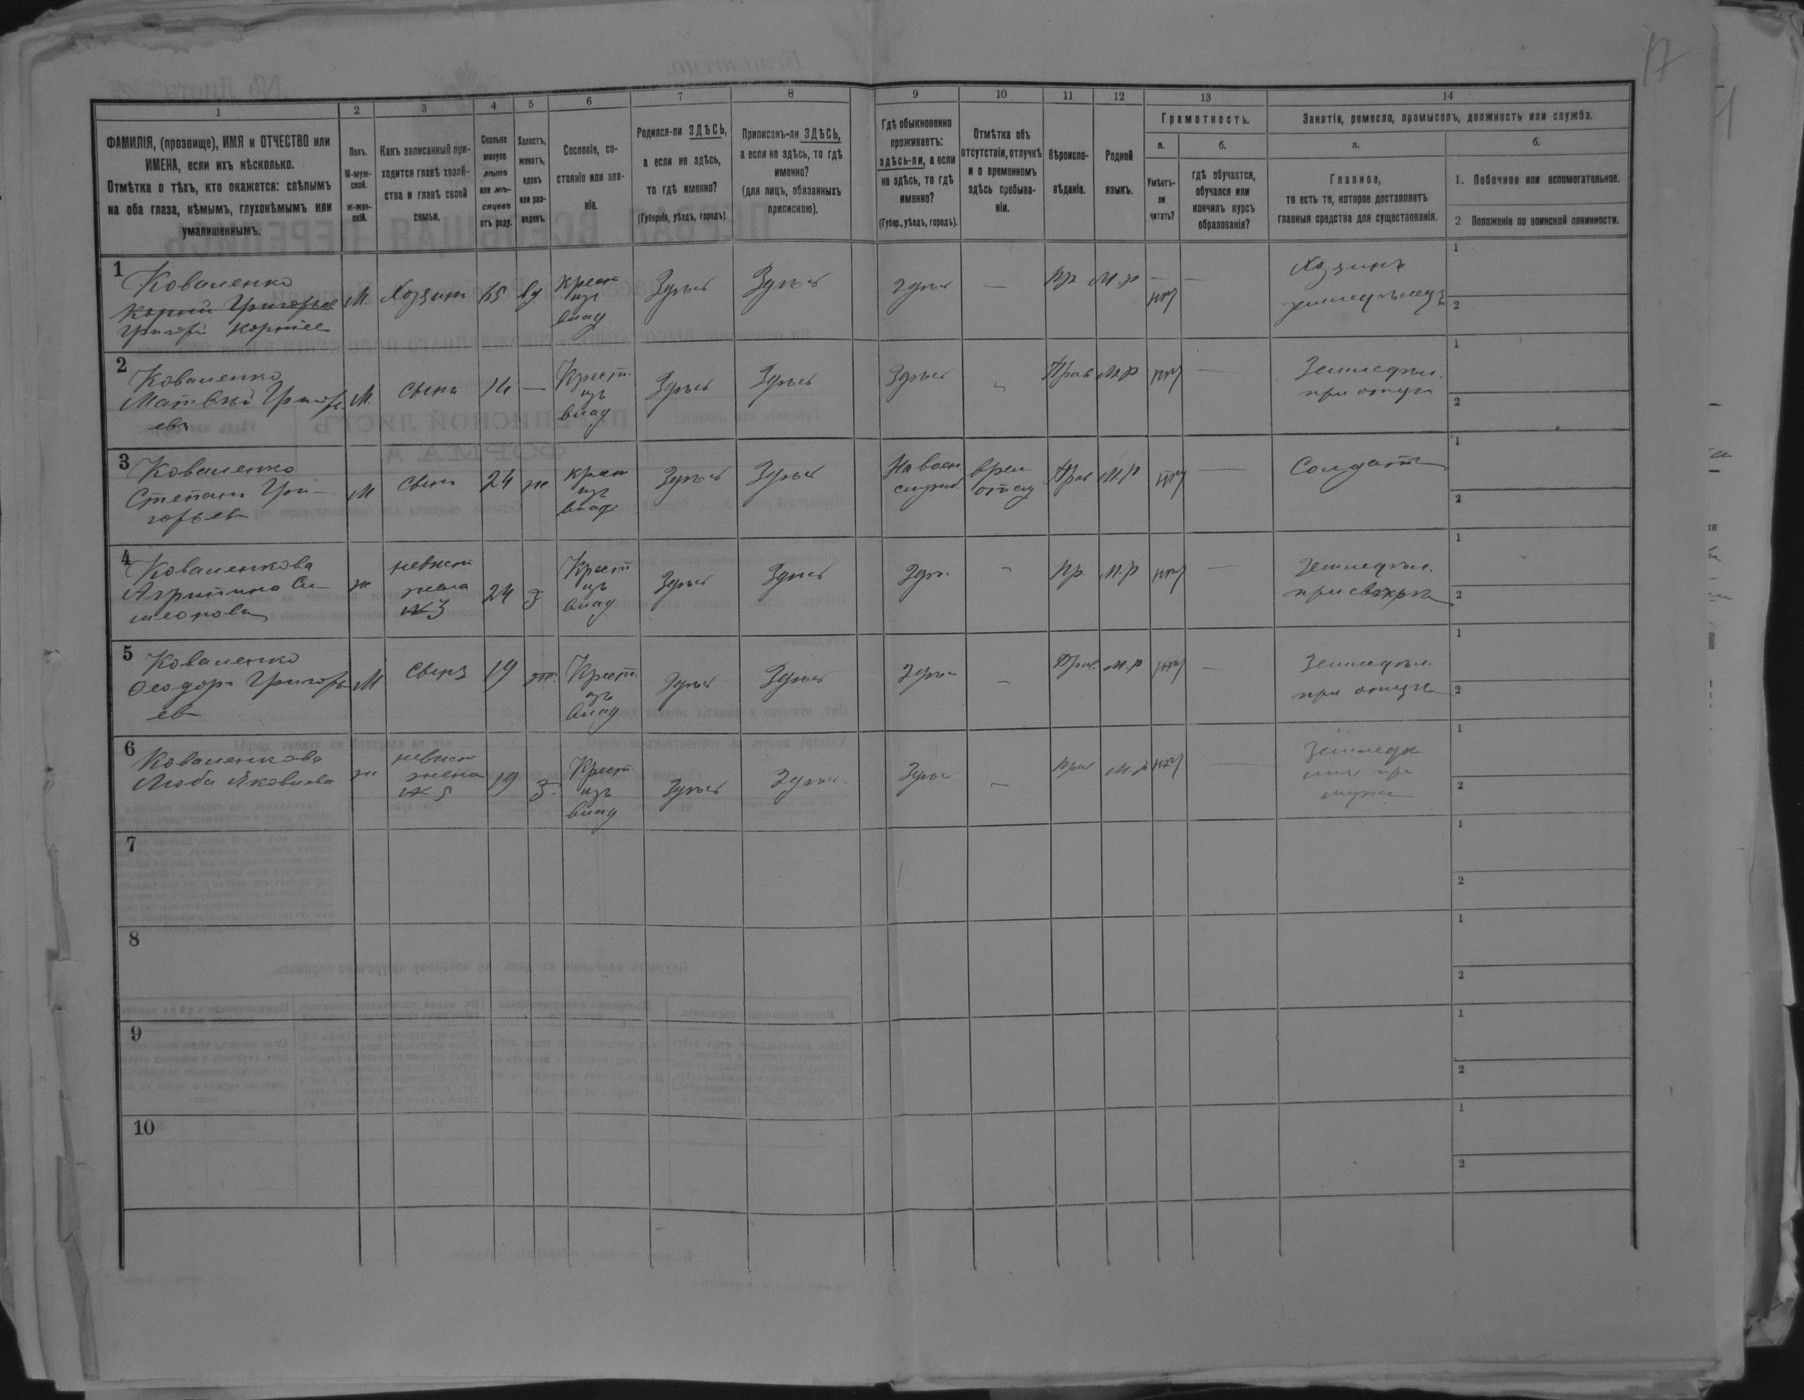 17
1
2
3
4
5
6
7
8
9
10
11
12
13
14
ФАМИЛІЯ, (прозвище), ИМЯ и ОТЧЕСТВО или
ИМЕНА, если ихъ нѣсколько.
Отмѣтка о тѣхъ, кто окажется: слѣпымъ
на оба глаза, нѣмымъ, глухонѣмымъ или
умалишеннымъ.
Полъ.
М-муж-
ской.
ж-жен-
скій.
Какъ записанный при-
ходится главѣ хозяй-
ства и главѣ своей
семьи.
Сколько
минуло
лѣтъ
или мѣ-
сяцевъ
отъ роду.
Холостъ,
женатъ,
вдовъ
или раз-
веденъ.
Сословіе, со-
стояніе или зва-
ніе.
Родился-ли ЗДѢСЬ,
а если не здѣсь,
то гдѣ именно?
(Губернія, уѣздъ, городъ).
Приписанъ-ли ЗДѢСЬ,
а если не здѣсь, то гдѣ
именно?
(для лицъ, обязанныхъ
припискою).
Гдѣ обыкновенно
проживаетъ:
здѣсь-ли, а если
не здѣсь, то гдѣ
именно?
(Губер., уѣздъ, городъ).
Отмѣтка объ
отсутствіи, отлучкѣ
и о временномъ
здѣсь пребыва-
ніи.
Вѣроиспо-
вѣданіе.
Родной
языкъ.
Грамотность.
а.
Умѣетъ-
ли
читать?
б.
гдѣ обучается,
обучался или
кончилъ курсъ
образованія?
Занятія, ремесло, промыселъ, должность или служба.
а.
Главное,
то есть то, которое доставляетъ
главныя средства для существованія.
б.
1. Побочное или вспомогательное.
2 Положеніе по воинской повинности.
1
Коваленко
Корній Григорьев
Григорій Корніев
М.
Хозяин
65
вд
крест
изъ
влад
Здѣсь
Здѣсь
здѣсь
—
пр
м.р
—
нѣт
—
Хозяинъ
земледѣлецъ
1
2
2
Коваленко
Матвѣй Григорь
евъ
М
сынъ
14
—
Крест
изъ
влад
Здѣсь
Здѣсь
Здѣсь
Прав
м.р
нѣт
—
Земледѣл.
при отцѣ
1
2
3
Коваленко
Степанъ Гри-
горьев
М
сынъ
24
ж
крест
изъ
влад
Здѣсь
Здѣсь
На воен
службѣ
врем
отпус
Прав
м.р
нѣт
—
Солдатъ
1
2
4
Коваленкова
Агрипина Си-
меонова
ж
невѣст
жена
№ 3
24
З
Крест
изъ
влад
Здѣсь
Здѣсь
Здѣсь
пр
м.р
нѣт
—
Земледѣл.
при свекрѣ
1
2
5
Коваленко
Ѳеодоръ Григорь
ев
М
сынъ
19
ж.
Крест
изъ
влад
Здѣсь
Здѣсь
Здѣсь
—
Прав.
м.р
нѣт
—
Земледѣл.
при отцѣ
1
2
6
Коваленкова
Люба Яковлева
ж
невѣст
жена
№ 5
19
З.
Крест
изъ
влад
Здѣсь
Здѣсь
Здѣсь
—
прав
м.р
нѣт
—
Земледѣ
при
мужѣ
1
2
7
1
2
8
1
2
9
1
2
10
1
2